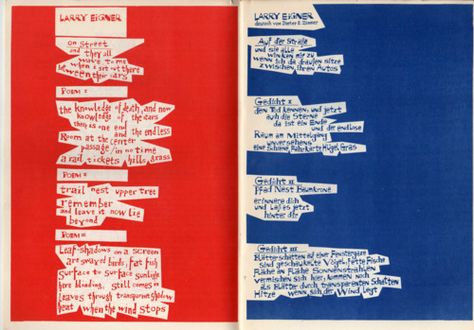 LARRY EIGNER
on street
and they all
wave to me
when I sit out there
between their cars
POEM I
the knowledge of death, and now
knowledge of the stars
there is one end
and the endless
Room at the center
passage / in no time
a rail tickets hills grass
POEM II
trail nest upper tree
remember
and leave it now lie
beyond
POEM III
Leaf-shadows on a screen
are swayed birds, fat fish
surface to surface sunlight
here blending, still comes
leaves through transparent shadow
heat when the wind stops
LARRY EIGNER
deutsch von Dieter E. Zimmer
Auf der Straße
und sie alle
winken mir zu
wenn ich da draußen sitze
zwischen ihren Autos
Gedicht I
den Tod kennen, und jetzt
auch die Sterne
da ist ein Ende
und der endlose
Raum am Mittelgang
unversehens
eine Schiene, Fahrkarte Hügel Gras
Gedicht II
Pfad Nest Baumkrone
erinnere dich
und laß es jetzt
hinter dir
Gedicht III
Blätterschatten auf einer Fenstergaze
sind geschaukelte Vögel, fette Fische
Fläche an Fläche Sonnenstrahlen
vermischen sich hier, kommen noch
das Blätter durch transparenten Schatten
Hitze wenn sich der Wind legt